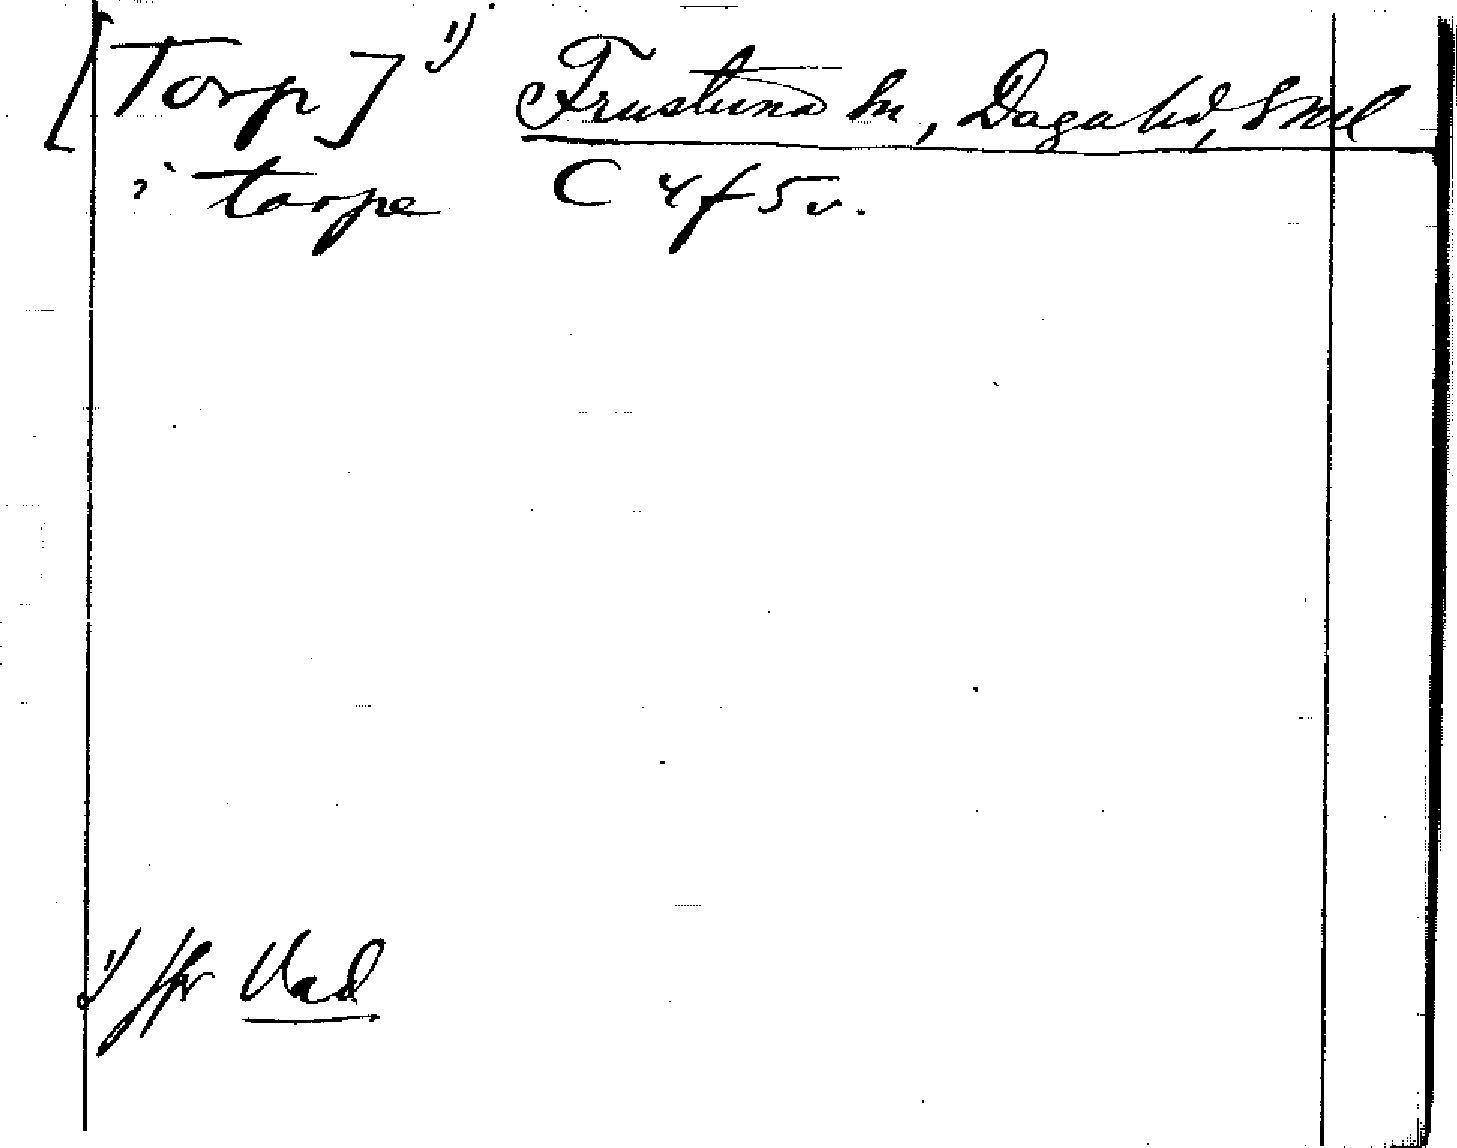 [Torp] 1) Frustuna sn, Daga hd, Sml
i torpe C 4 f 5 v.
1) jfr Vad